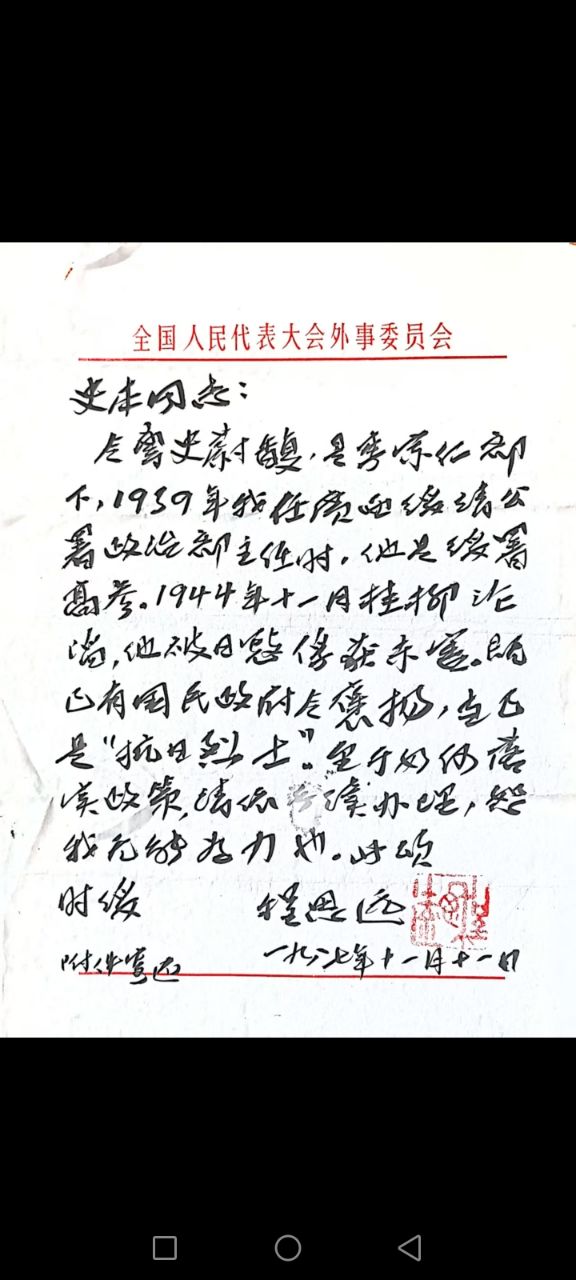 全国人民代表大会外事委员会
史本同志：
令尊史蔚馥，是李宗仁部
下，1939年我任 绥靖公
署政治部主任时，他是绥署
高参。1944年十一月桂柳沦
陷，他被日寇俘获杀害。既
已有国民政府令褒扬，自己
是“抗日烈士”。至于如何落
实政策，请依 续办理，恕
我无能为力也。此颂
时绥 程思远
一九八七年十一月十一日
附件寄还